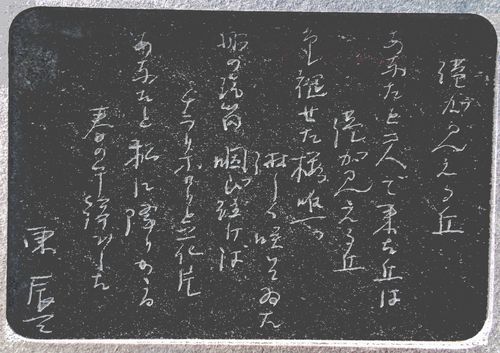 港が見える丘
あなたと二人で来た丘は
港が見える丘
色褪せた桜唯一つ
淋しく咲いてゐた
船の汽笛咽び泣けば
チラリホラリと花片
あなたと私に降りかかる
春の午後でした
東 辰三